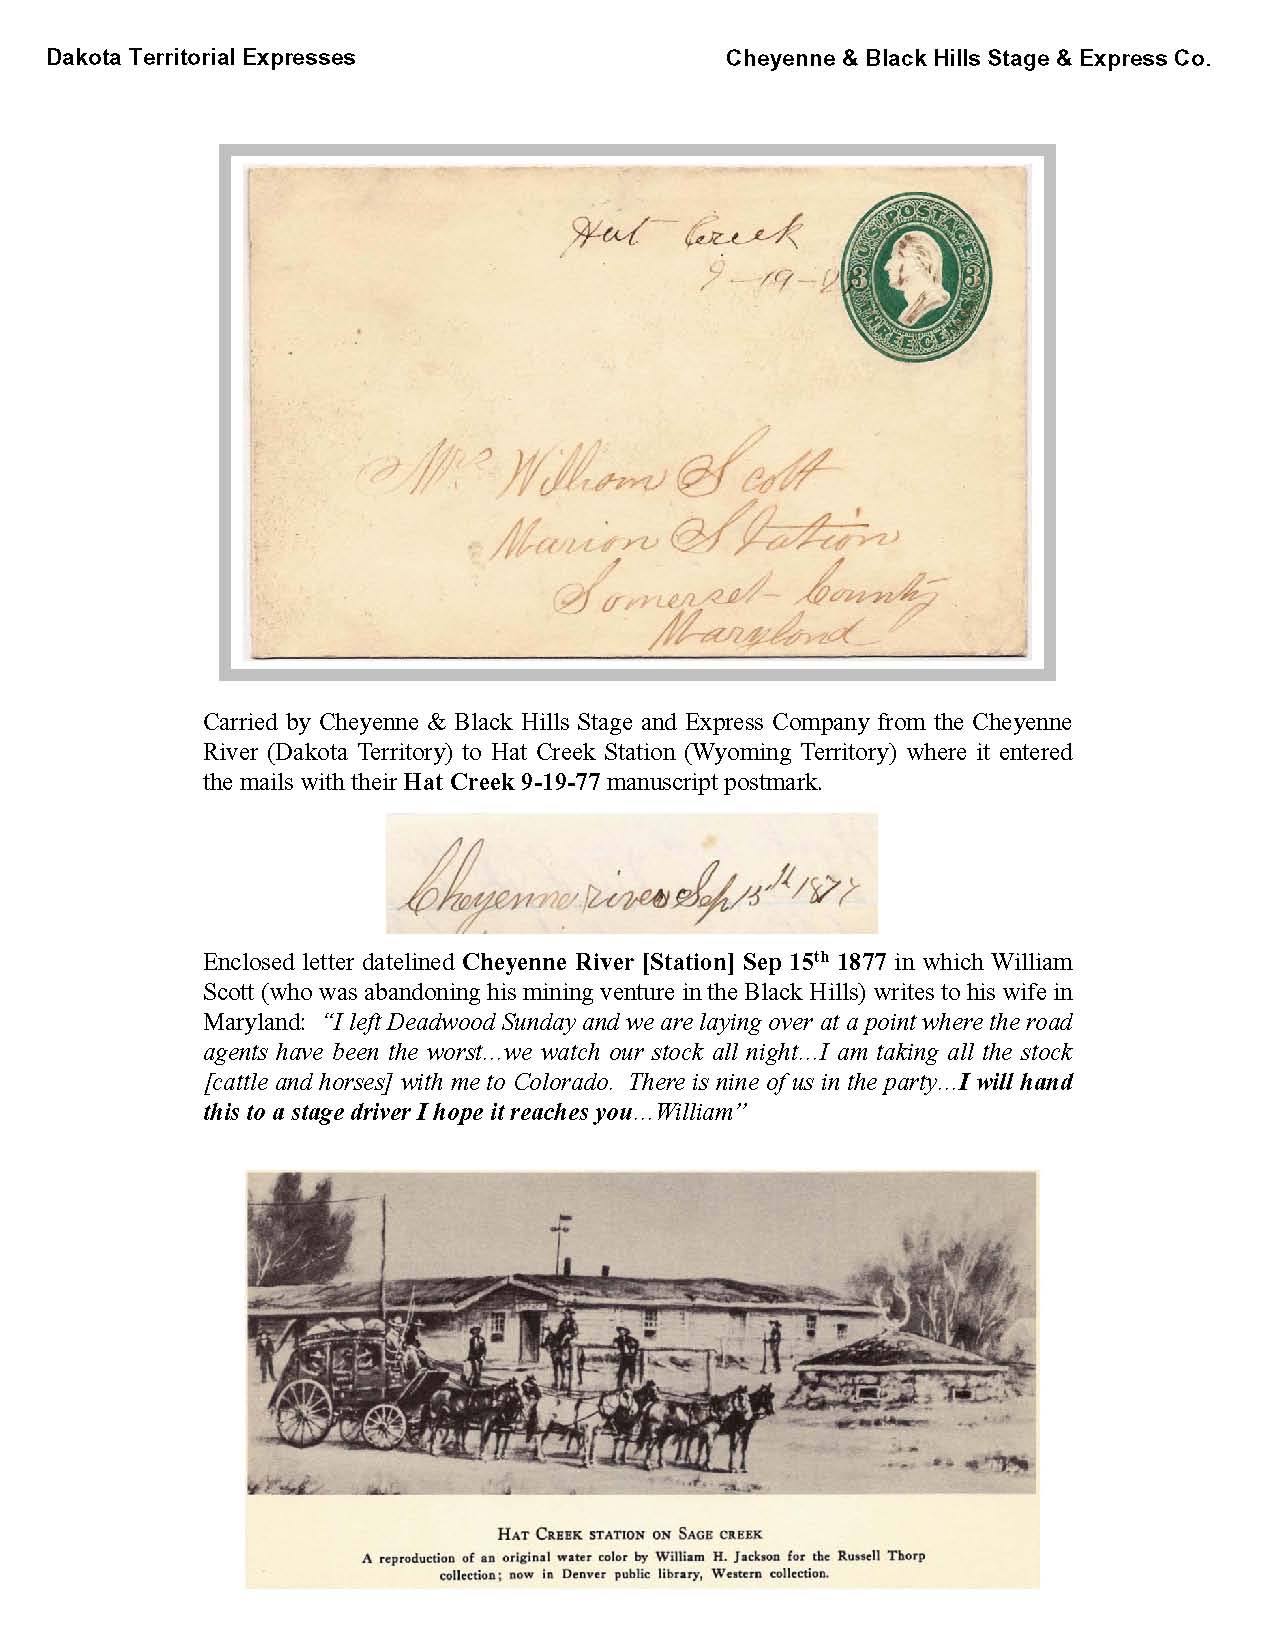 Dakota Territorial Expresses
Cheyenne & Black Hills Stage & Express Co.
Hat Creek
9-19-
U.S. POSTAGE
3 3
THREE CENTS
Mrs William Scott
Marion Station
Somerset County
Maryland
Carried by Cheyenne & Black Hills Stage and Express Company from the Cheyenne
River (Dakota Territory) to Hat Creek Station (Wyoming Territory) where it entered
the mails with their Hat Creek 9-19-77 manuscript postmark.
Cheyenne river Sep 15th 1877
Enclosed letter datelined Cheyenne River [Station] Sep 15th 1877 in which William
Scott (who was abandoning his mining venture in the Black Hills) writes to his wife in
Maryland: “I left Deadwood Sunday and we are laying over at a point where the road
agents have been the worst…we watch our stock all night…I am taking all the stock
[cattle and horses] with me to Colorado. There is nine of us in the party…I will hand
this to a stage driver I hope it reaches you…William”
HAT CREEK STATION ON SAGE CREEK
A reproduction of an original water color by William H. Jackson for the Russell Thorp
collection; now in Denver public library, Western collection.